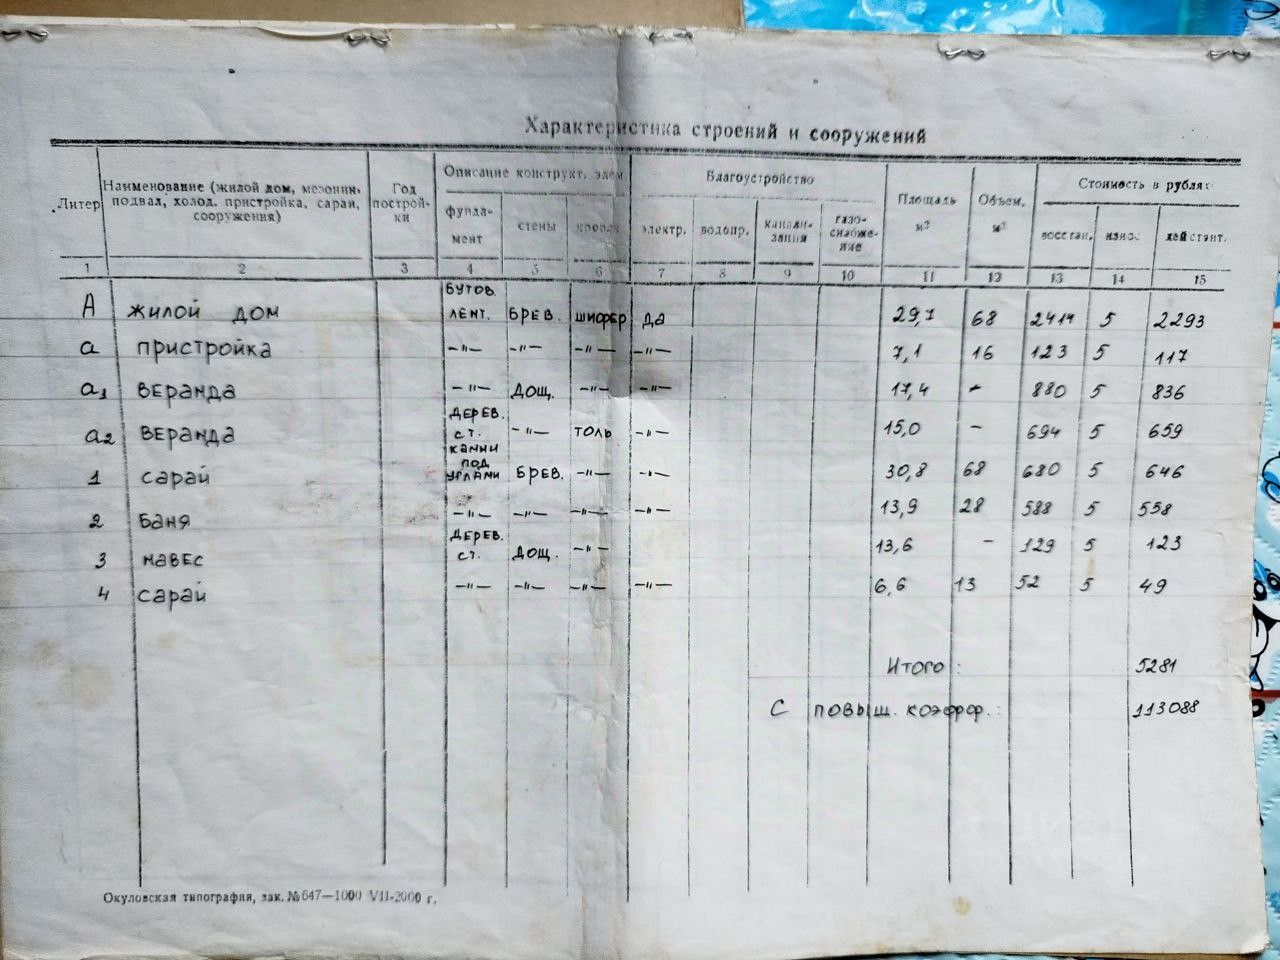 Характеристика строений и сооружений
Литер
Наименование (жилой дом, мезонин,
подвал, холод. пристройка, сарай,
сооружения)
Год
построй-
ки
Описание конструкт. элем.
фунда-
мент
стены
кровля
Благоустройство
электр.
водопр.
канали-
зация
газо-
снабже-
ние
Площадь
м²
Объем,
м³
Стоимость в рублях
восстан.
износ
действит.
1 2 3 4 5 6 7 8 9 10 11 12 13 14 15
бутов.
А жилой дом лент. брев. шифер да 29,7 68 2414 5 2293
а пристройка —"— —"— —"— —"— 7,1 16 123 5 117
а1 веранда —"— дощ. —"— —"— 17,4 - 880 5 836
дерев.
а2 веранда ст. —"— толь —"— 15,0 - 694 5 659
камни
под
1 сарай углами брев. —"— —"— 30,8 68 680 5 646
2 баня —"— —"— —"— —"— 13,9 28 588 5 558
дерев.
3 навес ст. дощ. —"— 13,6 - 129 5 123
4 сарай —"— —"— —"— —"— 6,6 13 52 5 49
Итого: 5281
с повыш. коэфф.: 113088
Окуловская типография, зак. №647—1000 VII-2000 г.